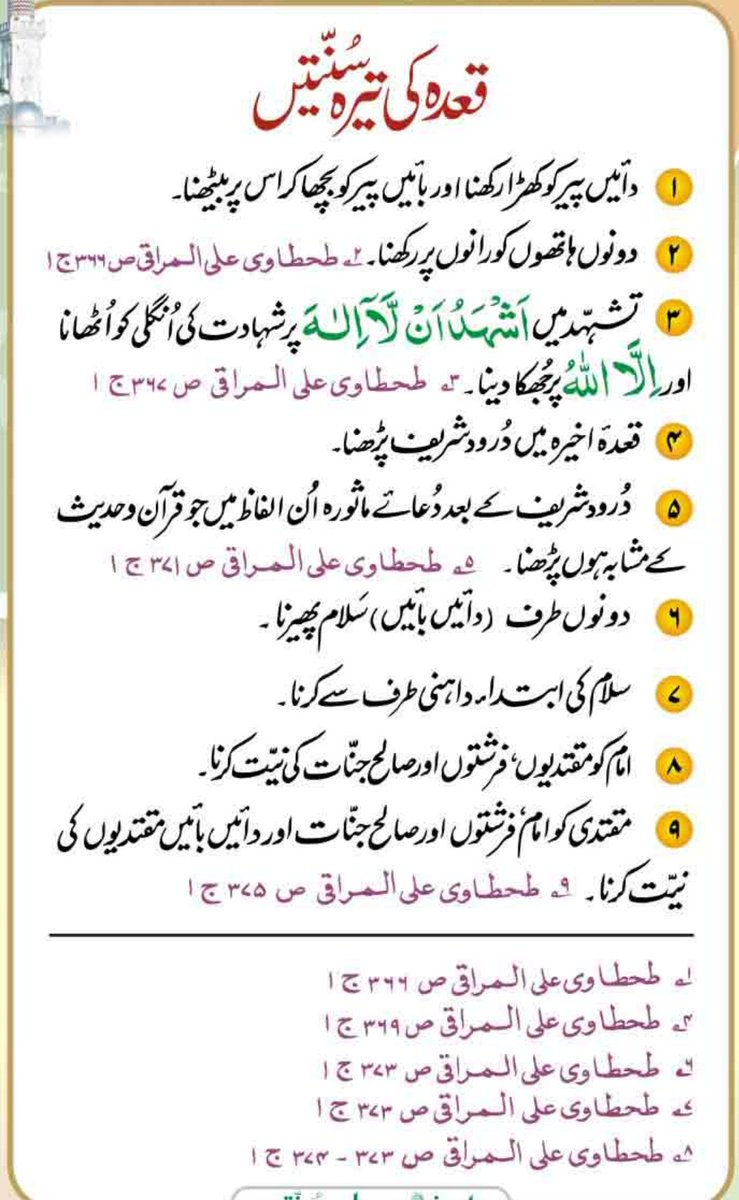 قعدہ کی تیرہ سُنّتیں
۱ دائیں پیر کو کھڑا رکھنا اور بائیں پیر کو بچھا کر اس پر بیٹھنا۔
۲ دونوں ہاتھوں کو رانوں پر رکھنا۔ ۲؎ طحطاوی علی المراقی ص ۳۶۶ ج ۱
۳ تشہّد میں اَشْهَدُ اَنْ لَّآ اِلٰهَ پر شہادت کی اُنگلی کو اُٹھانا
اور اِلَّا اللهُ پر جُھکا دینا۔ ۳؎ طحطاوی علی المراقی ص ۳۶۷ ج ۱
۴ قعدۂ اخیرہ میں دُرود شریف پڑھنا۔
۵ دُرود شریف کے بعد دُعائے ماثورہ اُن الفاظ میں جو قرآن و حدیث
کے مشابہ ہوں پڑھنا۔ ۵؎ طحطاوی علی المراقی ص ۳۷۱ ج ۱
۶ دونوں طرف (دائیں بائیں) سَلام پھیرنا۔
۷ سلام کی ابتداء داہنی طرف سے کرنا۔
۸ امام کو مقتدیوں، فرشتوں اور صالح جنّات کی نیّت کرنا۔
۹ مقتدی کو امام، فرشتوں اور صالح جنّات اور دائیں بائیں مقتدیوں کی
نیّت کرنا۔ ۹؎ طحطاوی علی المراقی ص ۳۷۵ ج ۱
۱؎ طحطاوی علی المراقی ص ۳۶۶ ج ۱
۴؎ طحطاوی علی المراقی ص ۳۶۹ ج ۱
۶؎ طحطاوی علی المراقی ص ۳۷۳ ج ۱
۷؎ طحطاوی علی المراقی ص ۳۷۳ ج ۱
۸؎ طحطاوی علی المراقی ص ۳۷۳ - ۳۷۴ ج ۱